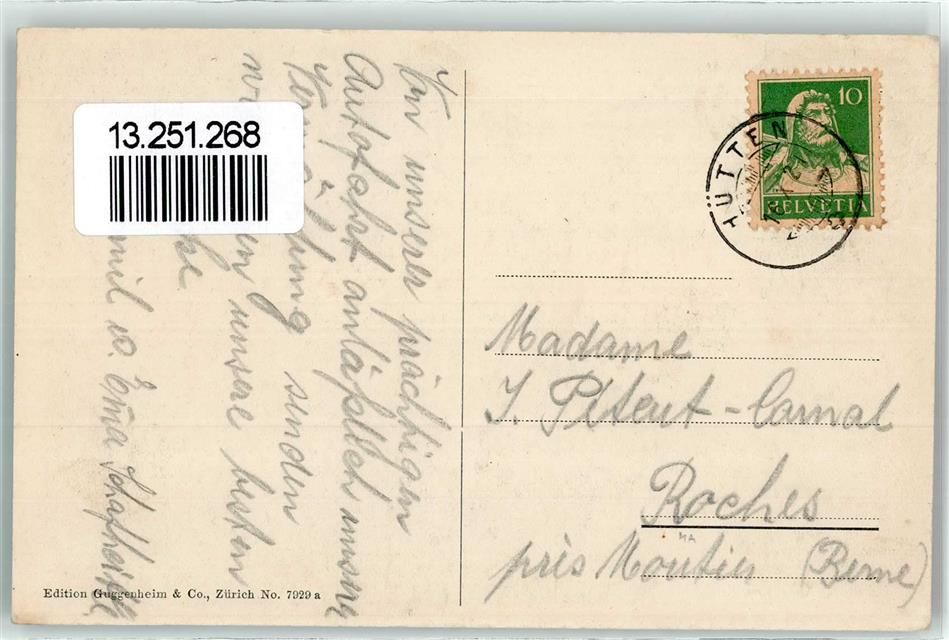 13.251.268
Von unserer prächtigen
Autofahrt anläßlich unsrer
Vermählung senden
wir unsere besten
Emil u. Erna
10
HELVETIA
HÜTTEN
Madame
J. Piteut-Carnal
Roches
près Moutier (Berne)
Edition Guggenheim & Co., Zürich No. 7929 a